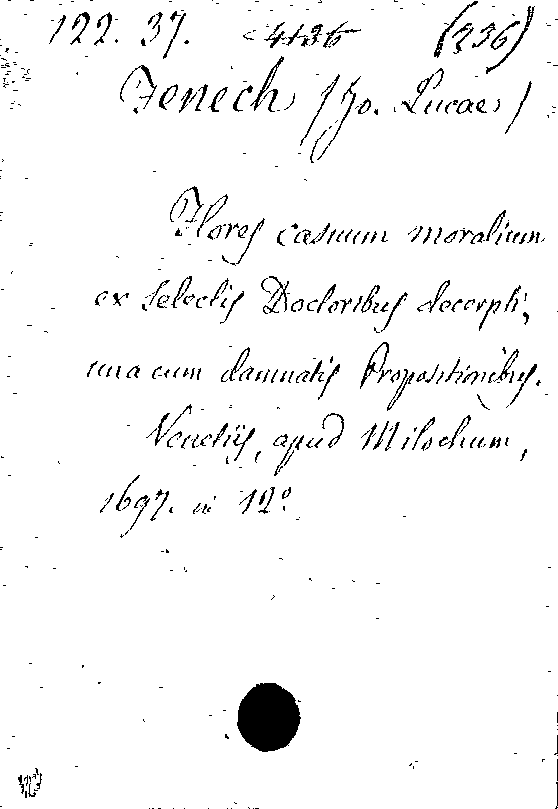 122. 37. <4136 (336)
Fenech /Jo. Lucae/
Flores casuum moralium
ex selectis Doctoribus decerpti,
una cum damnatis Propositionibus.
Venetiis, apud Milochum,
1697. in 12º